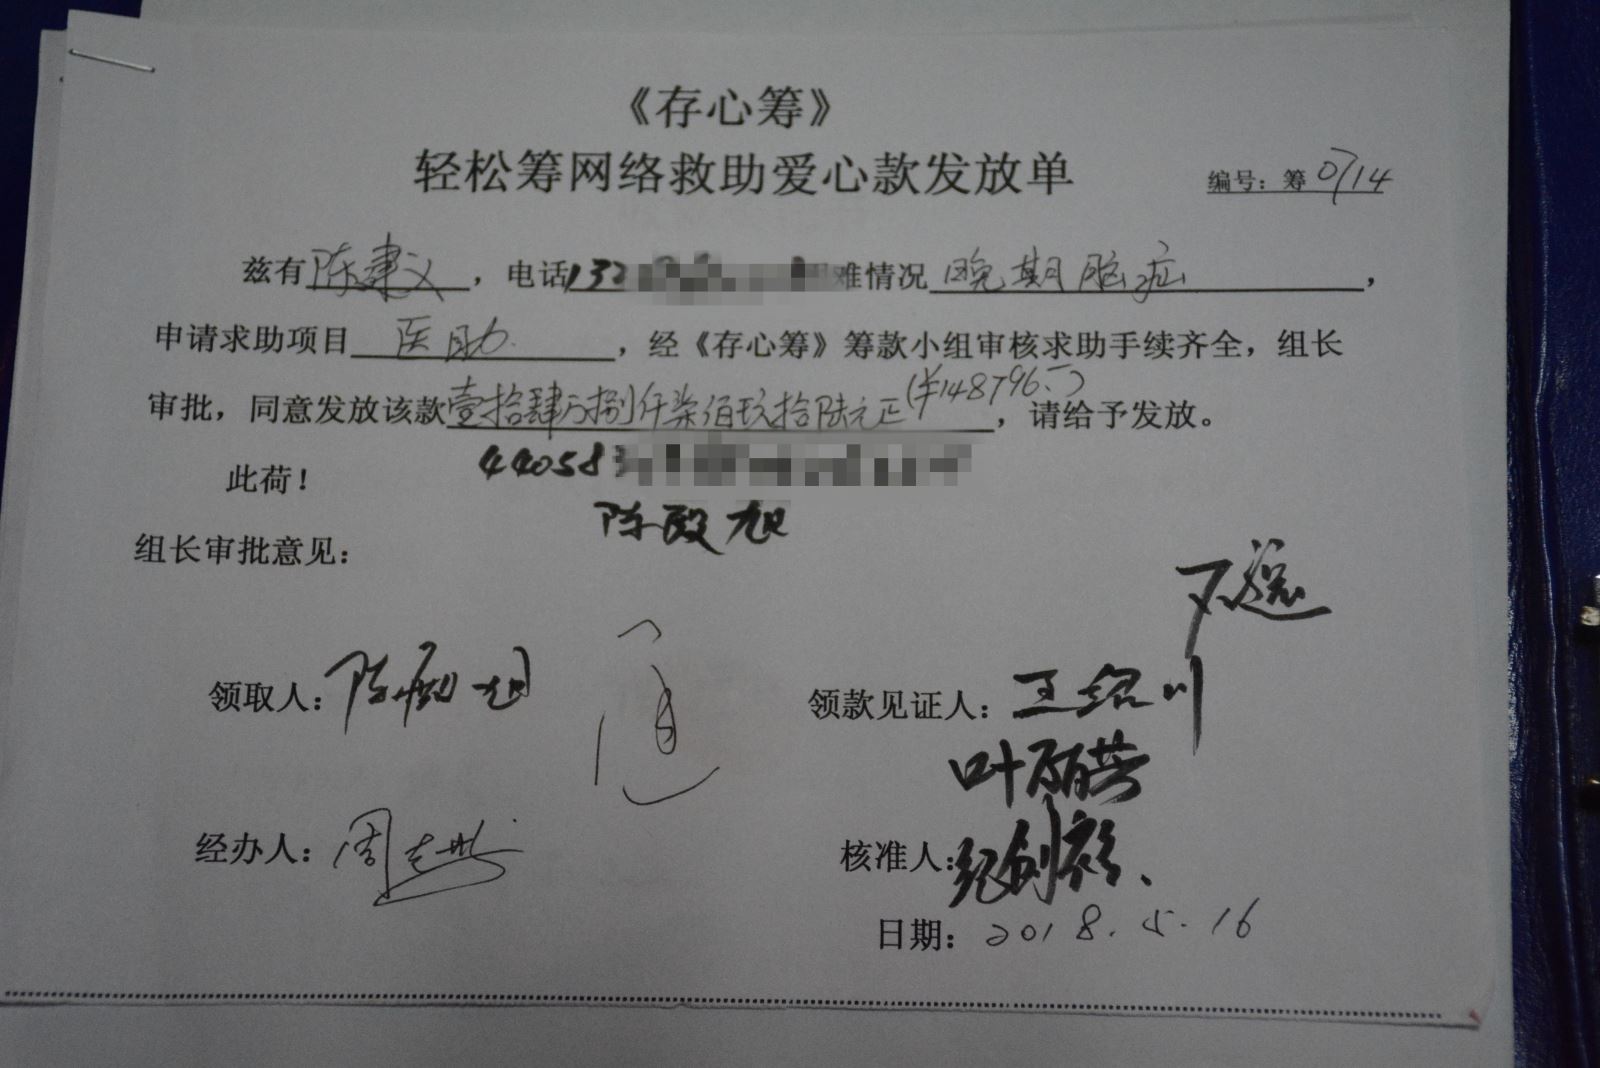 《存心筹》
轻松筹网络救助爱心款发放单
编号：筹0714
兹有陈建义，电话132 难情况晚期脑症，
申请求助项目医助，经《存心筹》筹款小组审核求助手续齐全，组长
审批，同意发放该款壹拾肆万捌仟柒佰玖拾陆元正(¥148796.-)，请给予发放。
此荷！
44058
陈 旭
组长审批意见：
领取人：陈 旭
领款见证人：王绍川
叶丽芸
经办人：周志
核准人：纪创
日期：2018.5.16